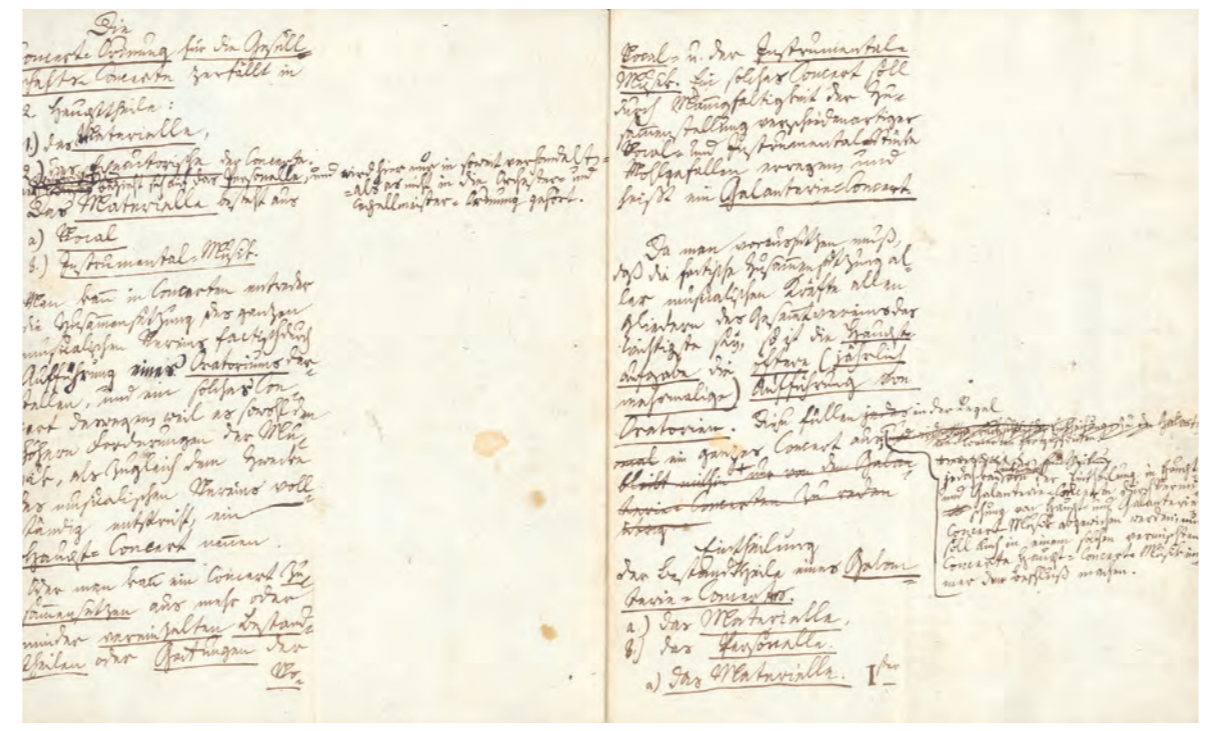 Die
Concerts-Ordnung für die Gesell-
schafts-Concerte zerfällt in
2 Haupttheile:
1.) das Materielle,
2.) das Executorische der Concerte.
bezieht sich auf das Personelle, und wird hier nur in soweit verhandelt,
als es nicht in die Orchester- und
Capellmeister-Ordnung gehört.
Das Materielle besteht aus
a) Vocal
b.) Instrumental-Musik.
Man kañ in Concerten entweder
die Zusammensetzung des ganzen
musicalischen Vereins factisch durch
Aufführung eines Oratoriums dar-
stellen, und ein solches Con-
cert deswegen weil es sowohl den
höhern Forderungen der Mu-
sik, als zugleich dem Zwecke
des musicalischen Vereins voll-
ständig entspricht, ein
Haupt-Concert nennen.
Oder man kañ ein Concert zu-
sammensetzen aus mehr oder
minder vereinzelten Bestand-
theilen oder Gattungen der
Vo-
Vocal- u. der Instrumental-
Musik. Ein solches Concert soll
durch Mannigfaltigkeit der Zu-
sammenstellung verschiedenartiger
Vocal- und Instrumental-Stücke
Wohlgefallen erregen und
heißt ein Galanterie-Concert
Da man voraussetzen muß,
daß die factische Zusammensetzung al-
ler musicalischen Kräfte allen
Gliedern des Gesammtvereins das
wichtigste sey, so ist die Haupt-
aufgabe die öftere (jährlich
mehrmalige) Aufführung von
Oratorien. Diese füllen jedes in der Regel
mal ein ganzes Concert aus
bleibt mithin nur von den Galan-
terie-Concerten zu reden
übrig
jedoch von der Eintheilung in Haupt
und Galanterie-Concerten durch Vermi-
schung von Haupt und Galanterie
Concert Musik abgewichen werden; nur
soll auch in einem solchen vermischten
Concerte Haupt-Concerts Musik im-
mer den Beschluß machen.
Eintheilung
der Bestandtheile eines Galan-
terie-Concertes.
a.) das Materielle.
b.) das Personelle.
a) das Materielle. I.ster